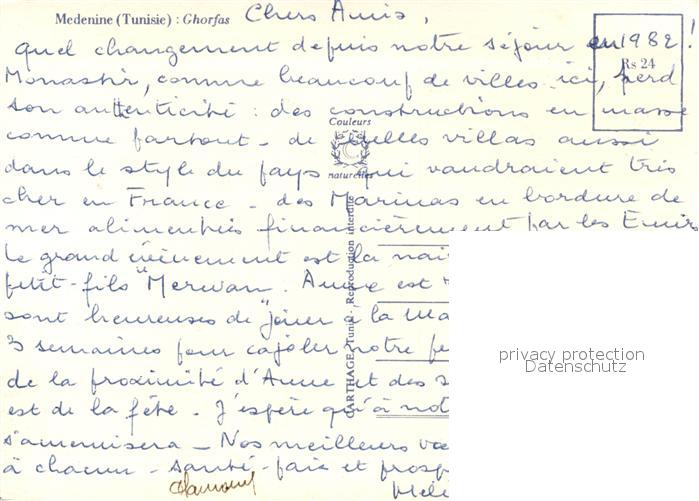 Medenine (Tunisie) : Ghorfas
Chers Amis,
Quel changement depuis notre séjour en 1982 !
Rs 24
Monastir, comme beaucoup de villes ici, perd
son authenticité : des constructions en masse
comme partout - de belles villas aussi
Couleurs
naturelles
dans le style du pays qui vaudraient très
cher en France - des Marinas en bordure de
mer alimentées financièrement par les Emirs
Le grand évènement est la nai
petit-fils "Merwan. Anne est
sont heureuses de "jouer à la Ma
3 semaines pour cajoler notre pe
de la proximité d'Anne et des s
est de la fête. J'espère qu'à not
s'amenuisera - Nos meilleurs vœ
à chacun - santé - paix et prosp
CARTHAGE - Tunis - Reproduction interdite
privacy protection
Datenschutz